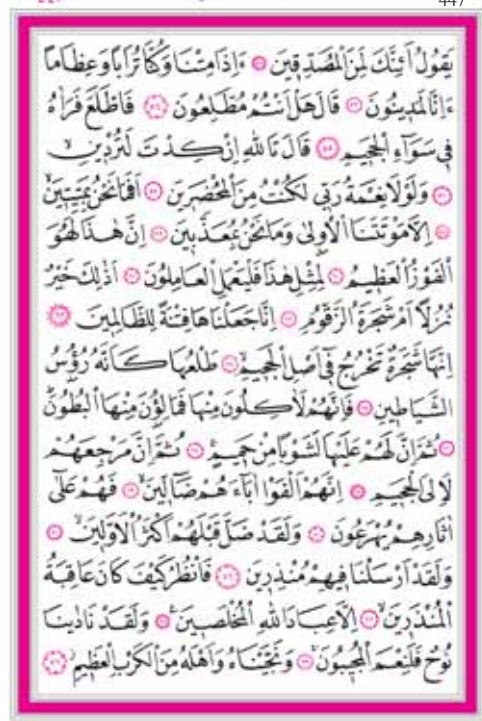 447
يَقُولُ اَئِنَّكَ لَمِنَ الْمُصَدِّقِينَ ءَاِذَا مِتْنَا وَكُنَّا تُرَابًا وَعِظَامًا
ءَاِنَّا لَمَدِينُونَ قَالَ هَلْ اَنْتُمْ مُطَّلِعُونَ فَاطَّلَعَ فَرَاٰهُ
فِي سَوَٓاءِ الْجَحِيمِ قَالَ تَاللّٰهِ اِنْ كِدْتَ لَتُرْدِينِ
وَلَوْلَا نِعْمَةُ رَبِّي لَكُنْتُ مِنَ الْمُحْضَرِينَ اَفَمَا نَحْنُ بِمَيِّتِينَ
اِلَّا مَوْتَتَنَا الْاُولٰى وَمَا نَحْنُ بِمُعَذَّبِينَ اِنَّ هٰذَا لَهُوَ
الْفَوْزُ الْعَظِيمُ لِمِثْلِ هٰذَا فَلْيَعْمَلِ الْعَامِلُونَ اَذٰلِكَ خَيْرٌ
نُزُلًا اَمْ شَجَرَةُ الزَّقُّومِ اِنَّا جَعَلْنَاهَا فِتْنَةً لِلظَّالِمِينَ
اِنَّهَا شَجَرَةٌ تَخْرُجُ فِٓي اَصْلِ الْجَحِيمِ طَلْعُهَا كَاَنَّهُ رُؤُسُ
الشَّيَاطِينِ فَاِنَّهُمْ لَاٰكِلُونَ مِنْهَا فَمَالِؤُنَ مِنْهَا الْبُطُونَ
ثُمَّ اِنَّ لَهُمْ عَلَيْهَا لَشَوْبًا مِنْ حَمِيمٍ ثُمَّ اِنَّ مَرْجِعَهُمْ
لَاِلَى الْجَحِيمِ اِنَّهُمْ اَلْفَوْا اٰبَٓاءَهُمْ ضَٓالِّينَ فَهُمْ عَلٰٓى
اٰثَارِهِمْ يُهْرَعُونَ وَلَقَدْ ضَلَّ قَبْلَهُمْ اَكْثَرُ الْاَوَّلِينَ
وَلَقَدْ اَرْسَلْنَا فِيهِمْ مُنْذِرِينَ فَانْظُرْ كَيْفَ كَانَ عَاقِبَةُ
الْمُنْذَرِينَ اِلَّا عِبَادَ اللّٰهِ الْمُخْلَصِينَ وَلَقَدْ نَادٰينَا
نُوحٌ فَلَنِعْمَ الْمُجِيبُونَ وَنَجَّيْنَاهُ وَاَهْلَهُ مِنَ الْكَرْبِ الْعَظِيمِ